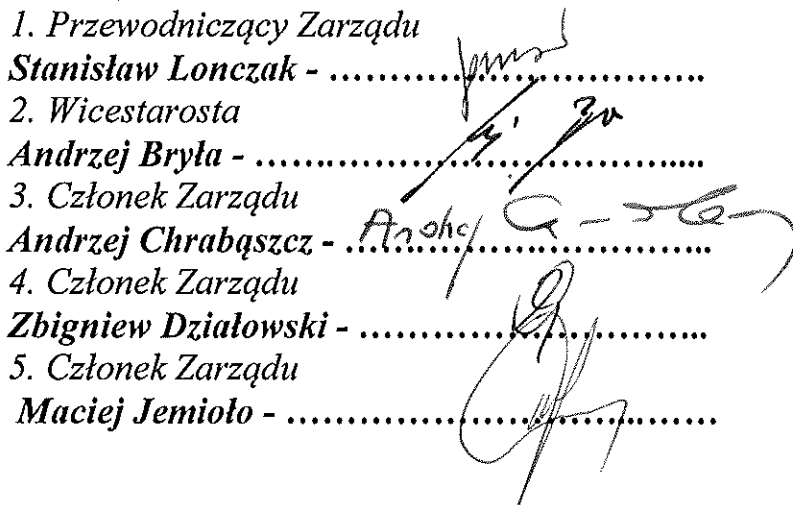 1. Przewodniczący Zarządu
Stanisław Lonczak - ......................................
2. Wicestarosta
Andrzej Bryła - .............................................
3. Członek Zarządu
Andrzej Chrabąszcz - ....................................
4. Członek Zarządu
Zbigniew Działowski - ...................................
5. Członek Zarządu
Maciej Jemioło - ...........................................